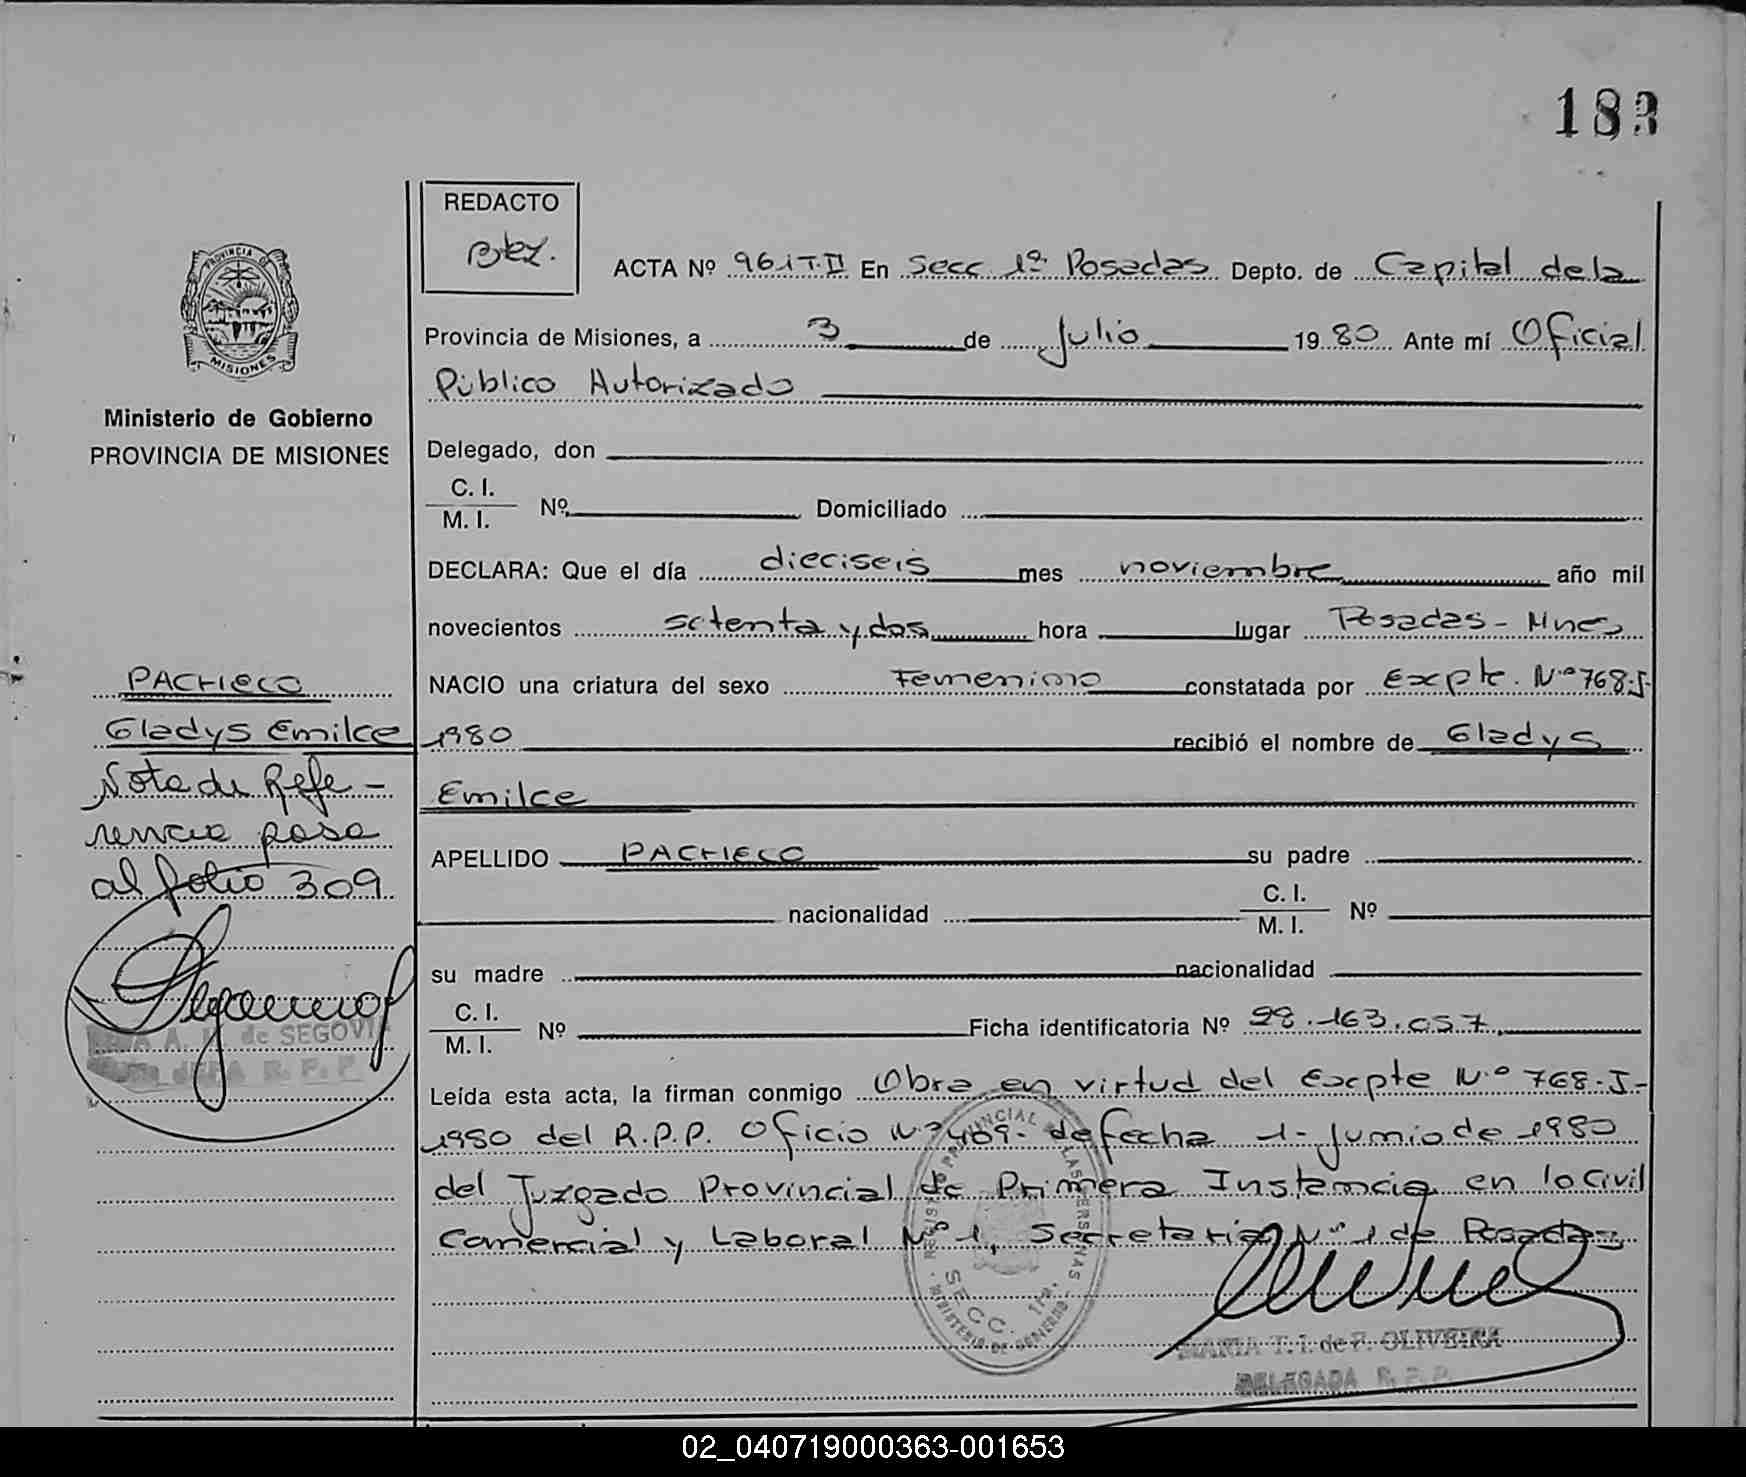 183
REDACTO
ACTA Nº 961 T.II En Secc 1ª Posadas Depto. de Capital de la
Provincia de Misiones, a 3 de Julio 1980 Ante mí Oficial
Público Autorizado
PROVINCIA DE
MISIONES
Ministerio de Gobierno
PROVINCIA DE MISIONES
Delegado, don
C. I.
M. I. Nº Domiciliado
DECLARA: Que el día dieciseis mes noviembre año mil
novecientos setenta y dos hora lugar Posadas - Mnes
PACHECO
NACIO una criatura del sexo Femenino constatada por Expte. Nº 768-I-
Gladys Emilce
1980 recibió el nombre de Gladys
Nota de Refe-
Emilce
rencia pasa
APELLIDO PACHECO su padre
al folio 309.
nacionalidad C. I.
M. I. Nº
su madre nacionalidad
C. I.
M. I. Nº Ficha identificatoria Nº 28.163.057
A. de SEGOVIA
JEFA R. P. P.
Leída esta acta, la firman conmigo Obra en virtud del Expte Nº 768-I-
1980 del R.P.P. Oficio Nº 409- de fecha 1- Junio de 1980
del Juzgado Provincial de Primera Instancia en lo Civil
Comercial y Laboral Nº 1, Secretaria Nº 1 de Posadas
REGISTRO PROVINCIAL DE LAS PERSONAS
SECC. 1ra.
MINISTERIO DE GOBIERNO
MARIA T. I. de F. OLIVEIRA
DELEGADA R. P. P.
02_040719000363-001653